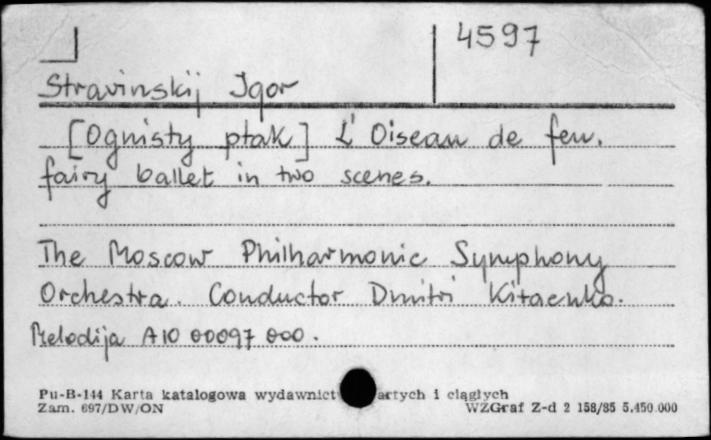 4597
Stravinskij Igor
[Ognisty ptak] L'Oiseau de feu.
fairy ballet in two scenes.
The Moscow Philharmonic Symphony
Orchestra. Conductor Dmitri Kitaenko.
Melodija A10 00097 000.
Pu-B-144 Karta katalogowa wydawnict artych i ciągłych
Zam. 697/DW/ON WZGraf Z-d 2 158/85 5.450.000